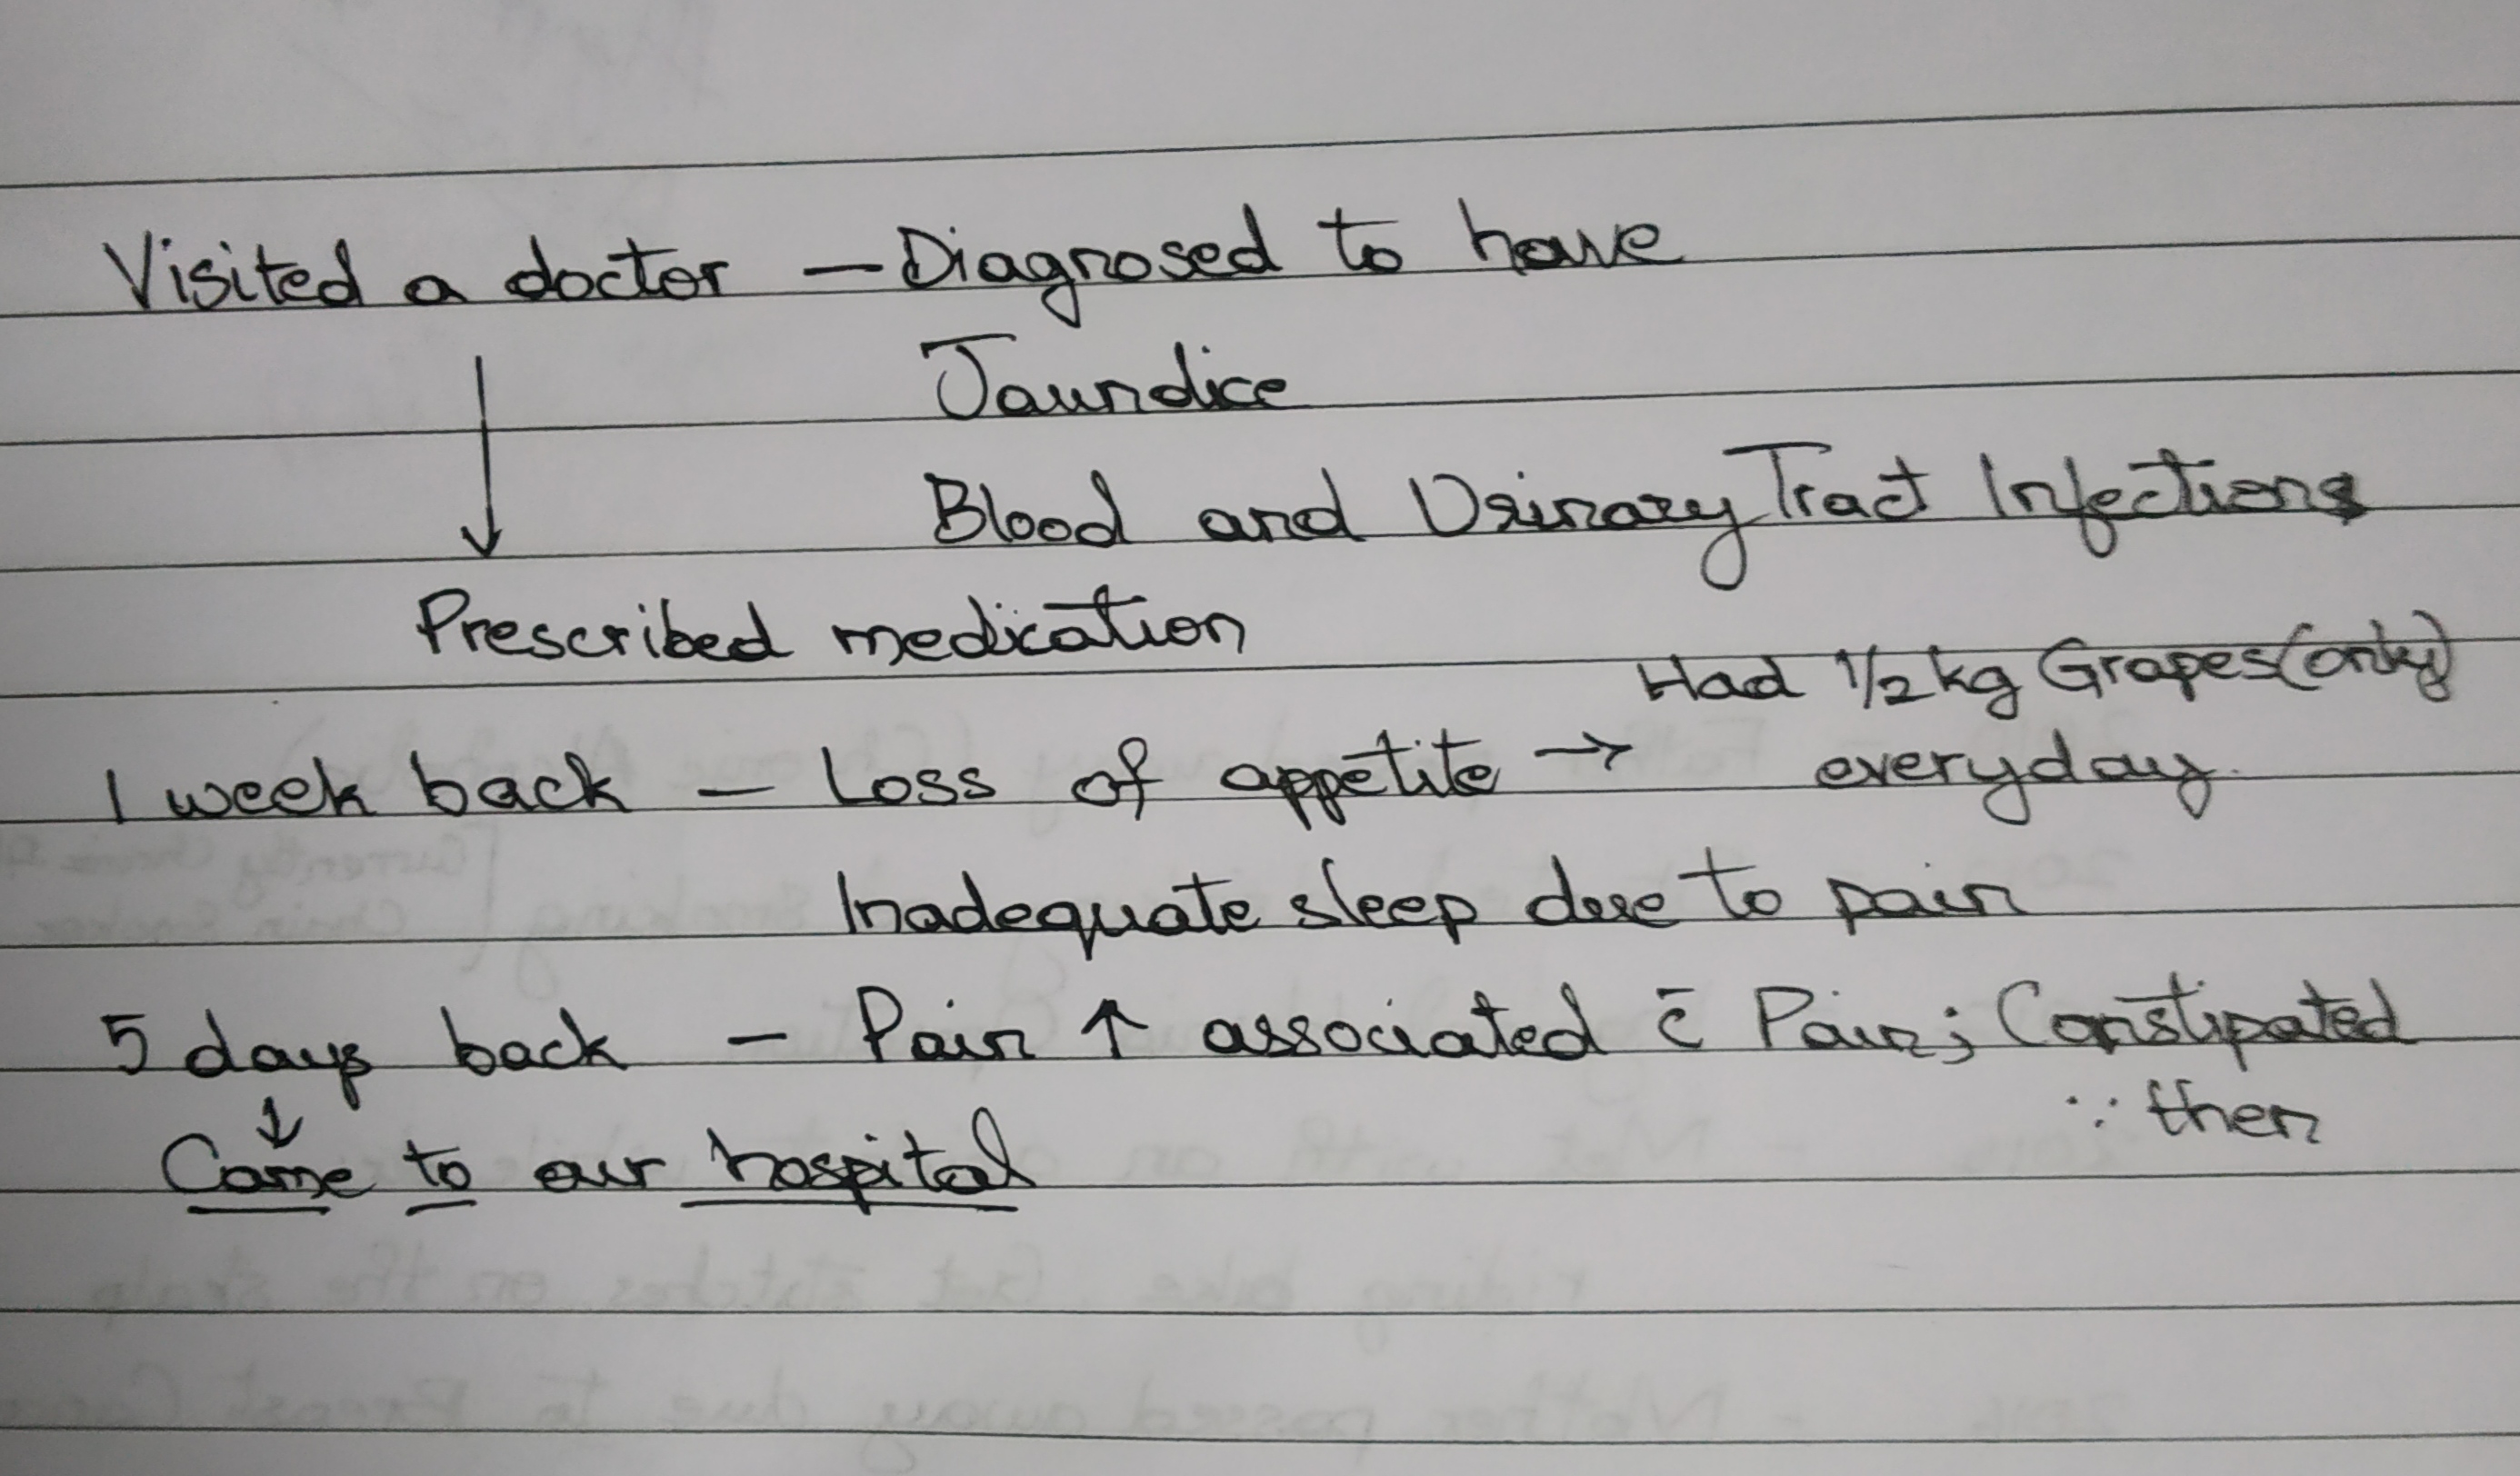 Visited a doctor — Diagnosed to have
Jaundice
Blood and Urinary Tract Infections
↓
Prescribed medication
Had 1/2 kg Grapes (only)
1 week back — Loss of appetite → everyday.
Inadequate sleep due to pain
5 days back — Pain ↑ associated c̄ Pain; Constipated
∵ then
↓
Came to our hospital